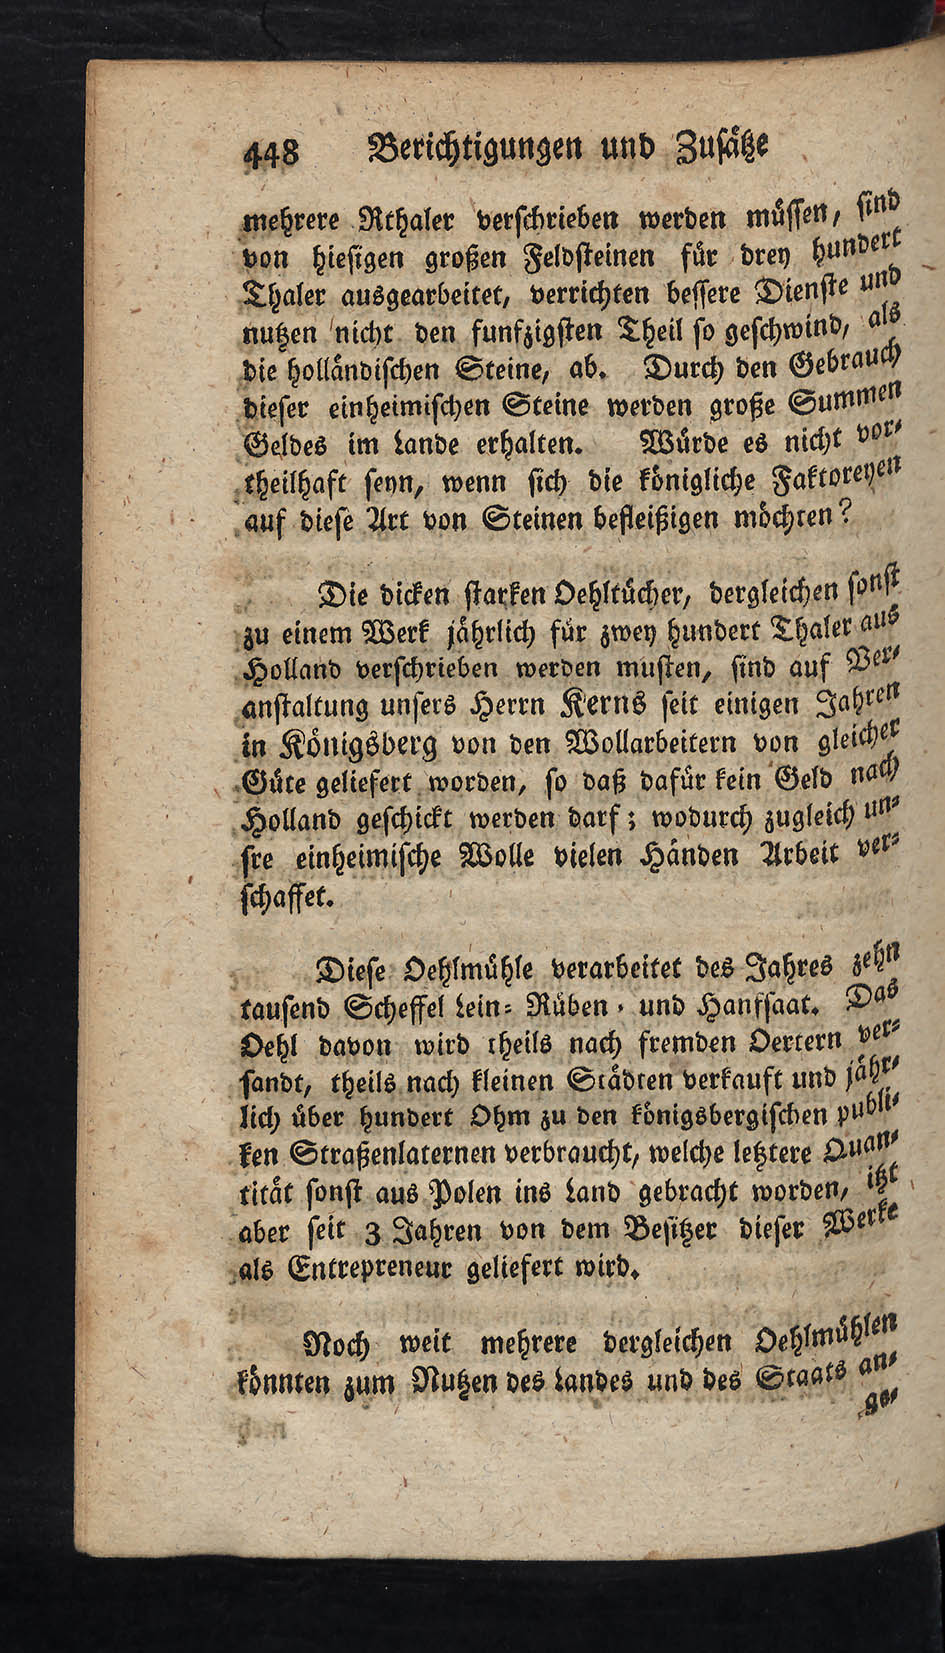 448 Berichtigungen und Zusätze
mehrere Rthaler verschrieben werden müssen, sind
von hiesigen großen Feldsteinen für drey hundert
Thaler ausgearbeitet, verrichten bessere Dienste und
nutzen nicht den funfzigsten Theil so geschwind, als
die holländischen Steine, ab. Durch den Gebrauch
dieser einheimischen Steine werden große Summen
Geldes im Lande erhalten. Würde es nicht vor-
theilhaft seyn, wenn sich die königliche Faktoreyen
auf diese Art von Steinen befleißigen möchten?
Die dicken starken Oehltücher, dergleichen sonst
zu einem Werk jährlich für zwey hundert Thaler aus
Holland verschrieben werden musten, sind auf Ver-
anstaltung unsers Herrn Kerns seit einigen Jahren
in Königsberg von den Wollarbeitern von gleicher
Güte geliefert worden, so daß dafür kein Geld nach
Holland geschickt werden darf; wodurch zugleich un-
sre einheimische Wolle vielen Händen Arbeit ver-
schaffet.
Diese Oehlmühle verarbeitet des Jahres zehn
tausend Scheffel Lein- Rüben- und Hanfsaat. Das
Oehl davon wird theils nach fremden Oertern ver-
sandt, theils nach kleinen Städten verkauft und jähr-
lich über hundert Ohm zu den königsbergischen publi-
ken Straßenlaternen verbraucht, welche letztere Quan-
tität sonst aus Polen ins Land gebracht worden, itzt
aber seit 3 Jahren von dem Besitzer dieser Werke
als Entrepreneur geliefert wird.
Noch weit mehrere dergleichen Oehlmühlen
könnten zum Nutzen des Landes und des Staats an-
ge-